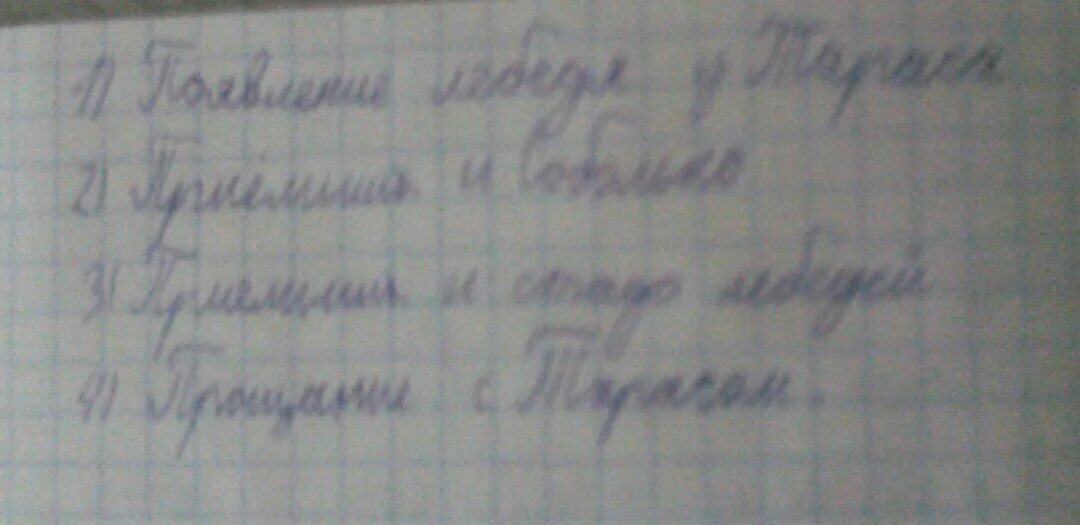 1) Появление лебедя у Тараса
2) Приёмыш и Соболько
3) Приемыш и стадо лебедей
4) Прощание с Тарасом.